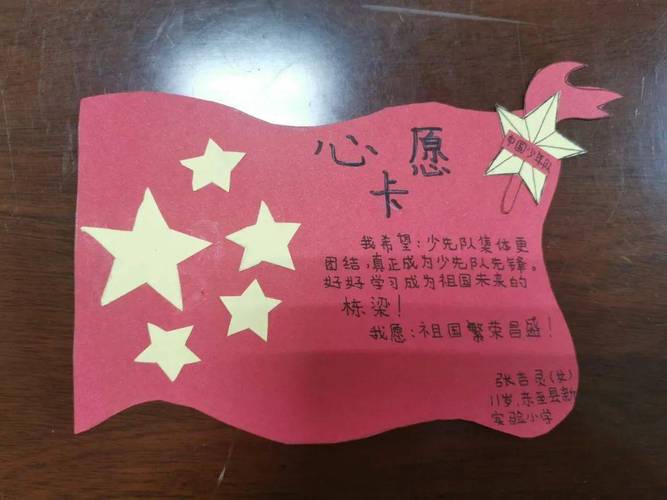 心愿
卡
中国少年队
我希望:少先队集体更
团结,真正成为少先队先锋。
好好学习成为祖国未来的
栋梁!
我愿:祖国繁荣昌盛!
张吉灵(女)
11岁,东至县新
实验小学